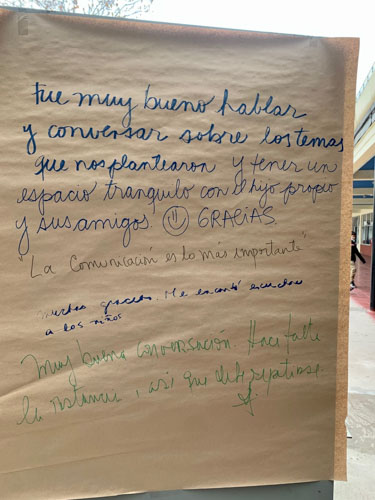 Fue muy bueno hablar
y conversar sobre los temas
que nos plantearon y tener un
espacio tranquilo con el hijo propio
y sus amigos! GRACIAS.
"La Comunicación es lo más importante"
muchas gracias. Me encantó escuchar
a los niños
Muy buena conversación. Hace falta
la instancia, así que debe repetirse.